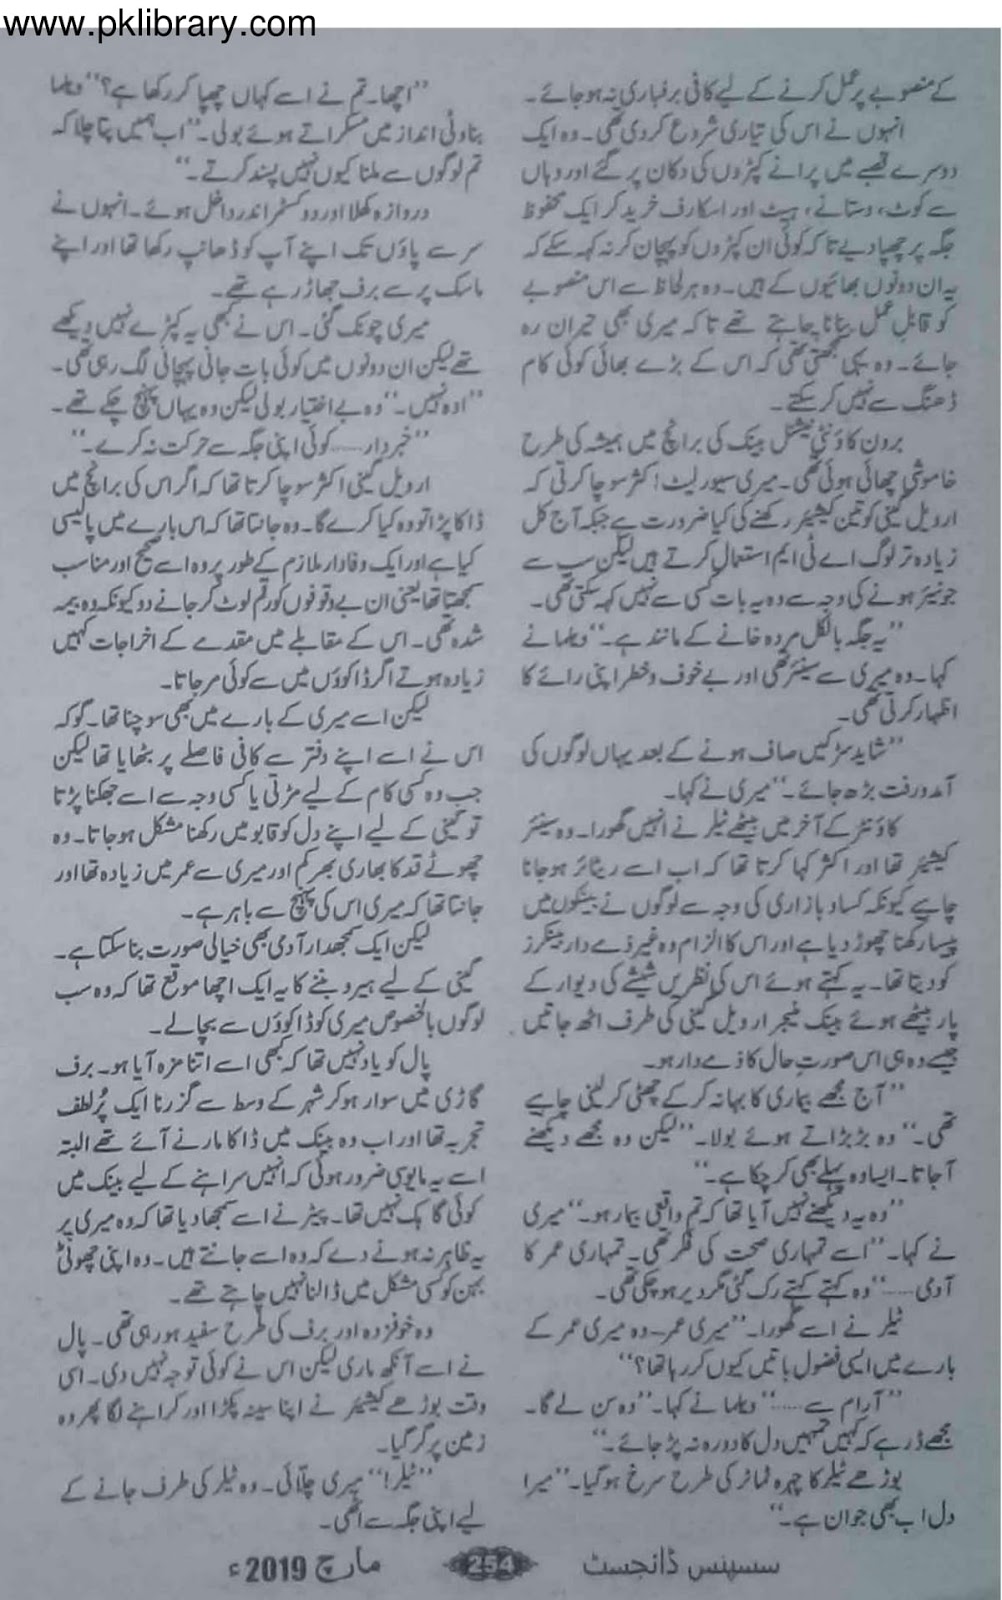 www.pklibrary.com
کے منصوبے پر عمل کرنے کے لیے کافی برفباری نہ ہو جائے۔
انہوں نے اس کی تیاری شروع کردی تھی۔ وہ ایک
دوسرے قصبے میں پرانے کپڑوں کی دکان پر گئے اور وہاں
سے کوٹ، دستانے، ہیٹ اور اسکارف خرید کر ایک محفوظ
جگہ پر چھپا دیے تاکہ کوئی ان کپڑوں کو پہچان کر نہ کہہ سکے کہ
یہ ان دونوں بھائیوں کے ہیں۔ وہ ہر لحاظ سے اس منصوبے
کو قابلِ عمل بنانا چاہتے تھے تاکہ میری بھی حیران رہ
جائے۔ وہ یہی سمجھتی تھی کہ اس کے بڑے بھائی کوئی کام
ڈھنگ سے نہیں کرسکتے۔
برون کاؤنٹی نیشنل بینک کی برانچ میں ہمیشہ کی طرح
خاموشی چھائی ہوئی تھی۔ میری سیورلیٹ اکثر سوچا کرتی کہ
ارویل گیٹی کو تین کیشیئر رکھنے کی کیا ضرورت ہے جبکہ آج کل
زیادہ تر لوگ اے ٹی ایم استعمال کرتے ہیں لیکن سب سے
جونیئر ہونے کی وجہ سے وہ یہ بات کسی سے نہیں کہہ سکتی تھی۔
’’یہ جگہ بالکل مردہ خانے کے مانند ہے۔‘‘ ویلما نے
کہا۔ وہ میری سے سینئر تھی اور بے خوف و خطر اپنی رائے کا
اظہار کرتی تھی۔
’’شاید سڑکیں صاف ہونے کے بعد یہاں لوگوں کی
آمدورفت بڑھ جائے۔‘‘ میری نے کہا۔
کاؤنٹر کے آخر میں بیٹھے ٹیلر نے انہیں گھورا۔ وہ سینئر
کیشیئر تھا اور اکثر کہا کرتا تھا کہ اب اسے ریٹائر ہوجانا
چاہیے کیونکہ کساد بازاری کی وجہ سے لوگوں نے بینکوں میں
پیسا رکھنا چھوڑ دیا ہے اور اس کا الزام وہ غیر ذمے دار بینکرز
کو دیتا تھا۔ یہ کہتے ہوئے اس کی نظریں شیشے کی دیوار کے
پار بیٹھے ہوئے بینک منیجر ارویل گیٹی کی طرف اٹھ جاتیں
جیسے وہ ہی اس صورتِ حال کا ذمے دار ہو۔
’’آج مجھے بیماری کا بہانہ کرکے چھٹی کرلینی چاہیے
تھی۔‘‘ وہ بڑبڑاتے ہوئے بولا۔ ’’لیکن وہ مجھے دیکھنے
آجاتا۔ ایسا وہ پہلے بھی کرچکا ہے۔‘‘
’’وہ یہ دیکھنے نہیں آیا تھا کہ تم واقعی بیمار ہو۔‘‘ میری
نے کہا۔ ’’اسے تمہاری صحت کی فکر تھی۔ تمہاری عمر کا
آدمی.....‘‘ وہ کہتے کہتے رک گئی مگر دیر ہوچکی تھی۔
ٹیلر نے اسے گھورا۔ ’’میری عمر- وہ میری عمر کے
بارے میں ایسی فضول باتیں کیوں کر رہا تھا؟‘‘
’’آرام سے.....‘‘ ویلما نے کہا۔ ’’وہ سن لے گا۔
مجھے ڈر ہے کہ کہیں تمہیں دل کا دورہ نہ پڑجائے۔‘‘
بوڑھے ٹیلر کا چہرہ ٹماٹر کی طرح سرخ ہوگیا۔ ’’میرا
دل اب بھی جوان ہے۔‘‘
’’اچھا۔ تم نے اسے کہاں چھپا کر رکھا ہے؟‘‘ ویلما
بناوٹی انداز میں مسکراتے ہوئے بولی۔ ’’اب ہمیں پتا چلا کہ
تم لوگوں سے ملنا کیوں نہیں پسند کرتے۔‘‘
دروازہ کھلا اور دو کسٹمر اندر داخل ہوئے۔ انہوں نے
سر سے پاؤں تک اپنے آپ کو ڈھانپ رکھا تھا اور اپنے
ماسک پر سے برف جھاڑ رہے تھے۔
میری چونک گئی۔ اس نے کبھی یہ کپڑے نہیں دیکھے
تھے لیکن ان دونوں میں کوئی بات جانی پہچانی لگ رہی تھی۔
’’اوہ نہیں۔‘‘ وہ بے اختیار بولی لیکن وہ یہاں پہنچ چکے تھے۔
’’خبردار..... کوئی اپنی جگہ سے حرکت نہ کرے۔‘‘
ارویل گیٹی اکثر سوچا کرتا تھا کہ اگر اس کی برانچ میں
ڈاکا پڑا تو وہ کیا کرے گا۔ وہ جانتا تھا کہ اس بارے میں پالیسی
کیا ہے اور ایک وفادار ملازم کے طور پر وہ اسے صحیح اور مناسب
سمجھتا تھا یعنی ان بے وقوفوں کو رقم لوٹ کر جانے دو کیونکہ وہ بیمہ
شدہ تھی۔ اس کے مقابلے میں مقدمے کے اخراجات کہیں
زیادہ ہوتے اگر ڈاکوؤں میں سے کوئی مرجاتا۔
لیکن اسے میری کے بارے میں بھی سوچنا تھا۔ گوکہ
اس نے اسے اپنے دفتر سے کافی فاصلے پر بٹھایا تھا لیکن
جب وہ کسی کام کے لیے مڑتی یا کسی وجہ سے اسے جھکنا پڑتا
تو گیٹی کے لیے اپنے دل کو قابو میں رکھنا مشکل ہوجاتا۔ وہ
چھوٹے قد کا بھاری بھرکم اور میری سے عمر میں زیادہ تھا اور
جانتا تھا کہ میری اس کی پہنچ سے باہر ہے۔
لیکن ایک سمجھدار آدمی بھی خیالی صورت بنا سکتا ہے۔
گیٹی کے لیے ہیرو بننے کا یہ ایک اچھا موقع تھا کہ وہ سب
لوگوں بالخصوص میری کو ڈاکوؤں سے بچالے۔
پال کو یاد نہیں تھا کہ کبھی اسے اتنا مزہ آیا ہو۔ برف
گاڑی میں سوار ہو کر شہر کے وسط سے گزرنا ایک پُرلطف
تجربہ تھا اور اب وہ بینک میں ڈاکا مارنے آئے تھے البتہ
اسے یہ مایوسی ضرور ہوئی کہ انہیں سراہنے کے لیے بینک میں
کوئی گاہک نہیں تھا۔ پیٹر نے اسے سمجھا دیا تھا کہ وہ میری پر
یہ ظاہر نہ ہونے دے کہ وہ اسے جانتے ہیں۔ وہ اپنی چھوٹی
بہن کو کسی مشکل میں ڈالنا نہیں چاہتے تھے۔
وہ خوفزدہ اور برف کی طرح سفید ہورہی تھی۔ پال
نے اسے آنکھ ماری لیکن اس نے کوئی توجہ نہیں دی۔ اسی
وقت بوڑھے کیشیئر نے اپنا سینہ پکڑا اور کراہنے لگا پھر وہ
زمین پر گر گیا۔
’’ٹیلر!‘‘ میری چلّائی۔ وہ ٹیلر کی طرف جانے کے
لیے اپنی جگہ سے اٹھی۔
سسپنس ڈائجسٹ 254 مارچ 2019ء